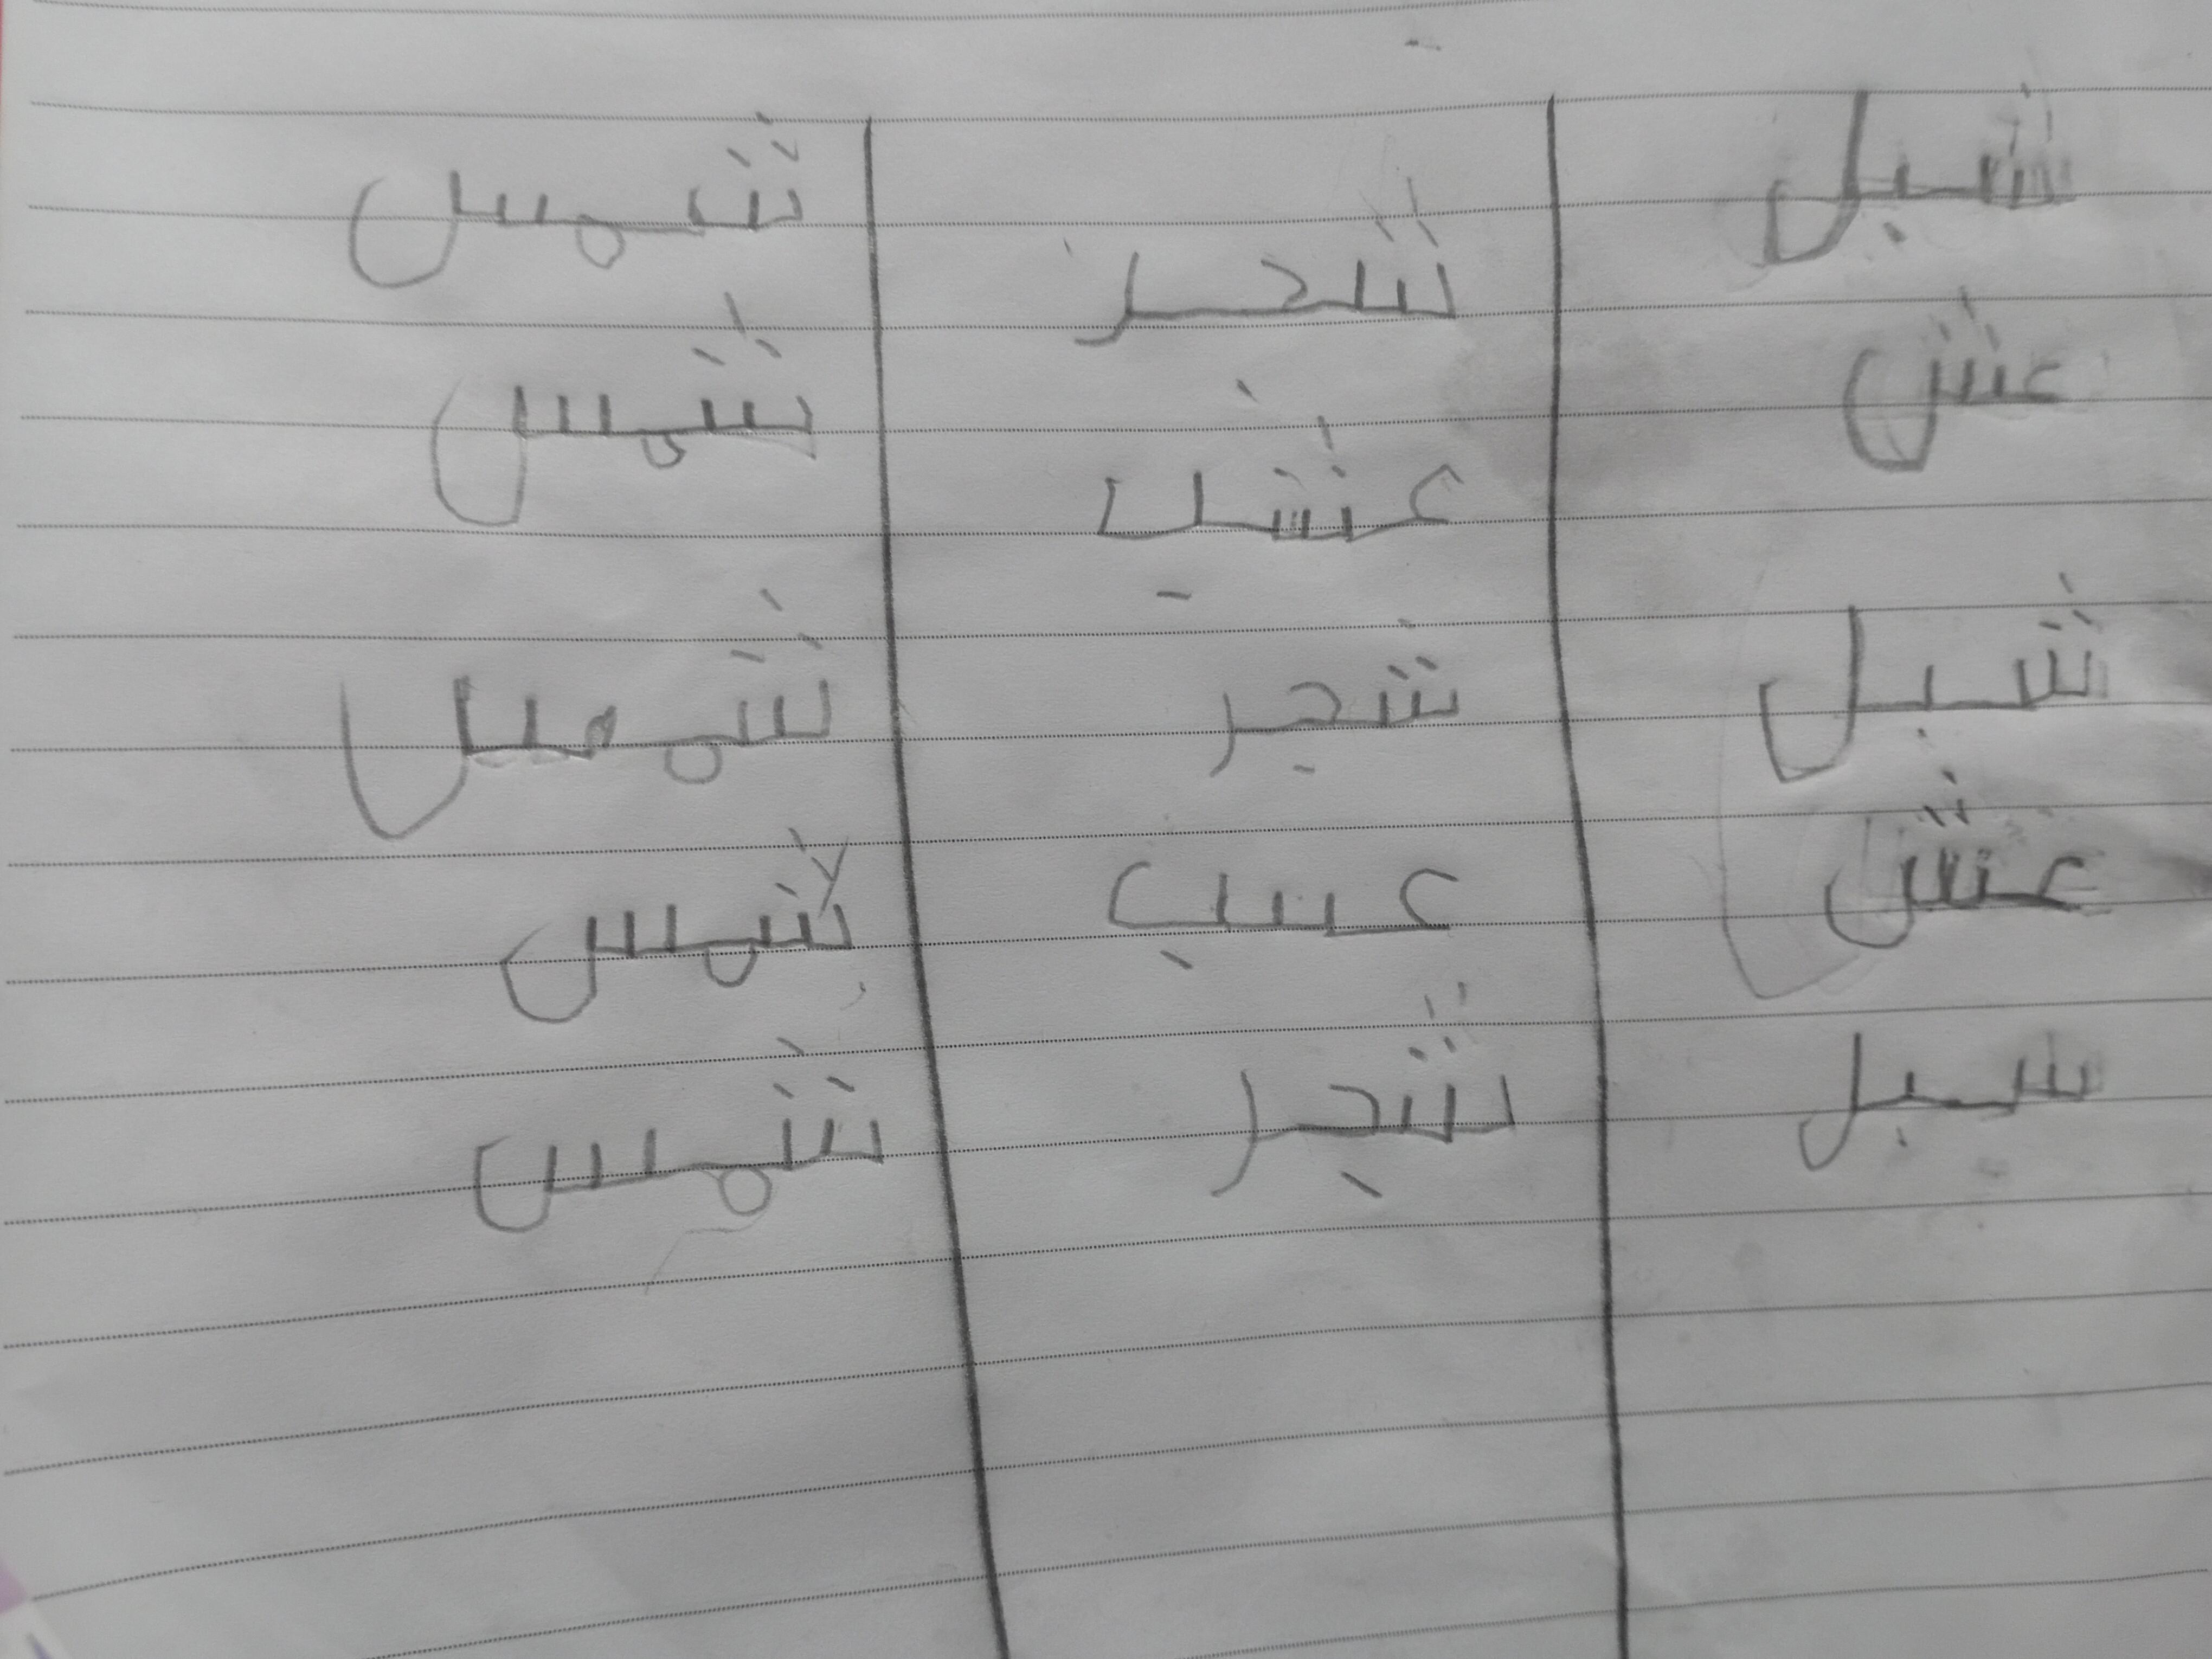 شبل
عش
شبل
عش
سبل
شحز
عشب
شجر
عسب
شجر
شمس
شمس
شمس
شمس
شمس